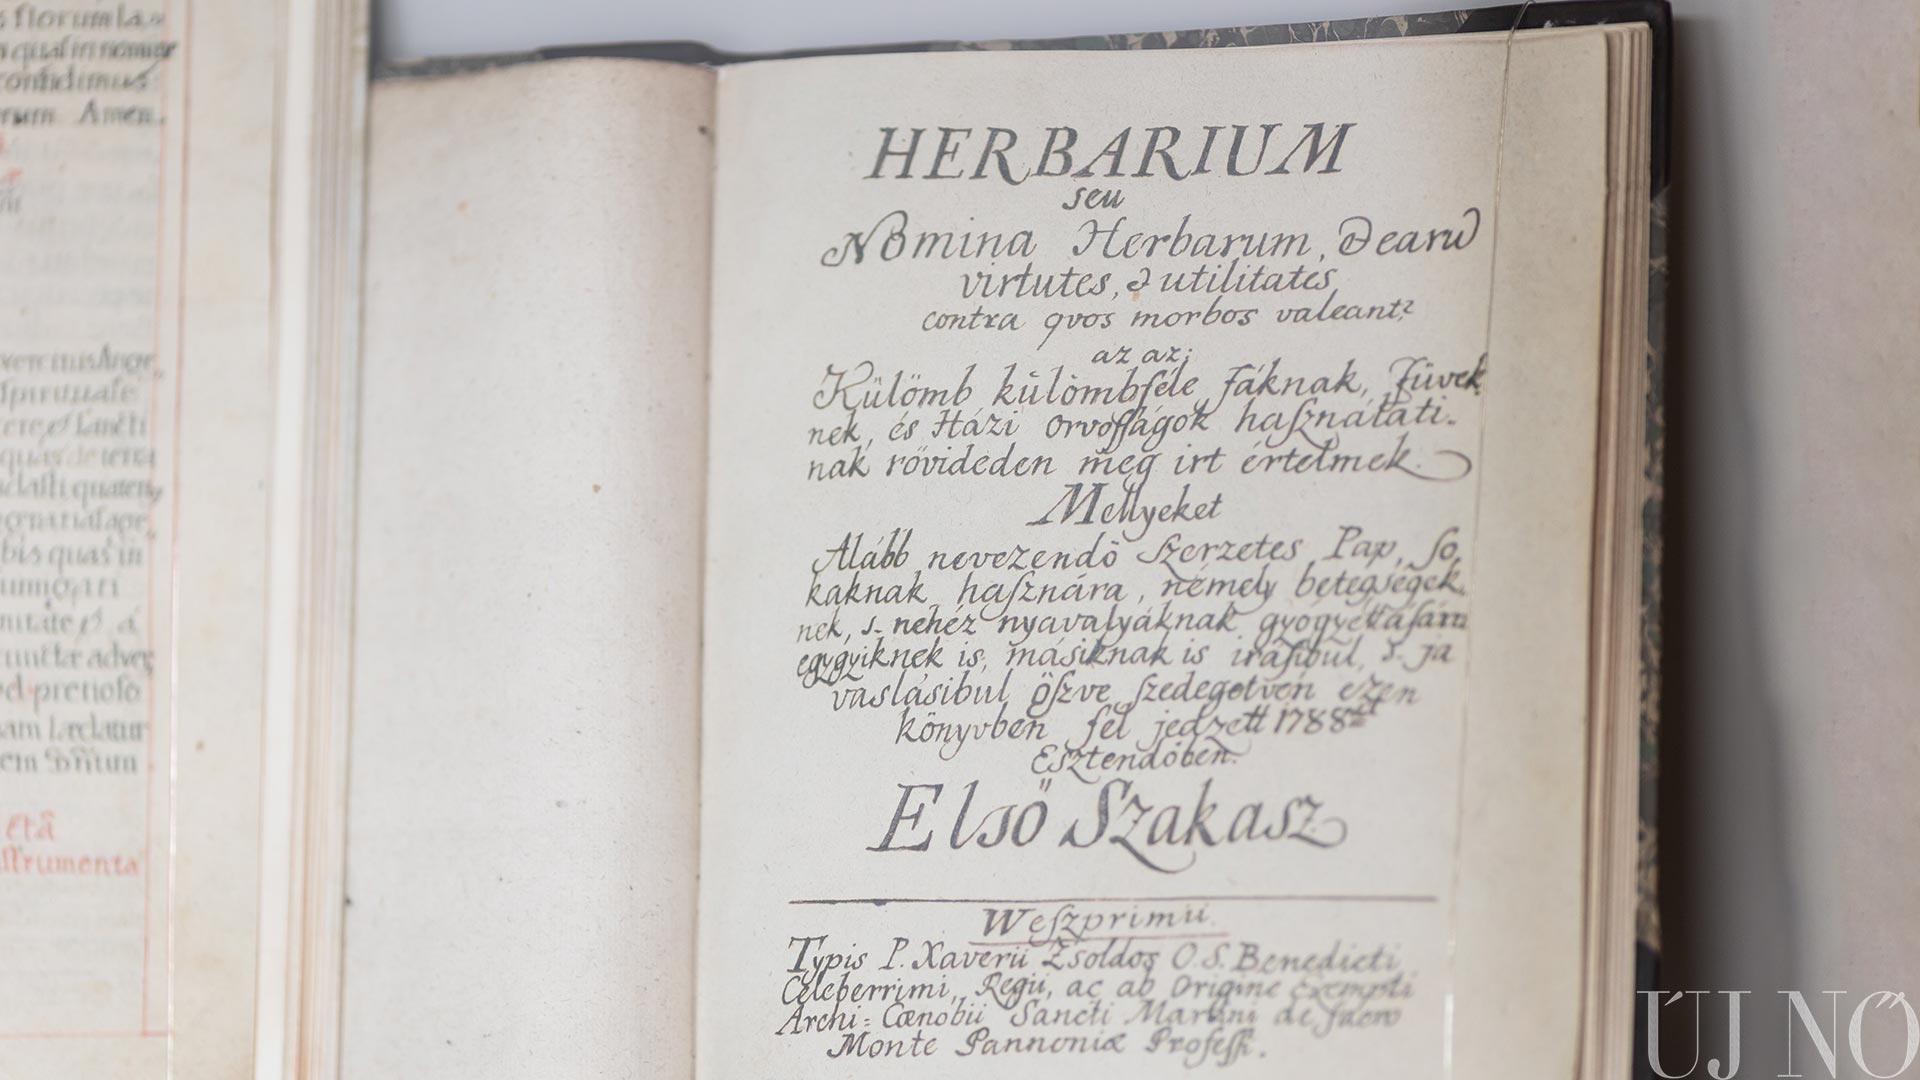 s florum la
qual in nomine
confidimus
rum Amen.
vereitus Ange
spirituale
quas de terra
bis quas in
nitate & a
cunctæ adver
pretioso
am lædatur
strumenta
HERBARIUM
seu
Nomina Herbarum, & earum
virtutes, & utilitates
contra qvos morbos valeant?
az az:
Külömb külömbféle Fáknak, Füvek
nek, és Házi orvosságok hasznátati-
nak rövideden meg irt értelmek.
Mellyeket
Alább nevezendö Szerzetes Pap, so
kaknak hasznára, némely betegségek
nek, s- nehéz nyavalyáknak gyógyéttására
egygyiknek is, másiknak is irásibul, s- ja
vaslásibul öszve szedegetvén ezen
könyvben fel jedzett 1788dik
Esztendöben.
Elsö Szakasz
Weszprimii.
Typis P. Xaverii Zsoldos O. S. Benedicti
Celeberrimi, Regii, ac ab Origine exempti
Archi=Cœnobii Sancti Martini de sacro
Monte Pannoniæ Profess.
ÚJ NŐ